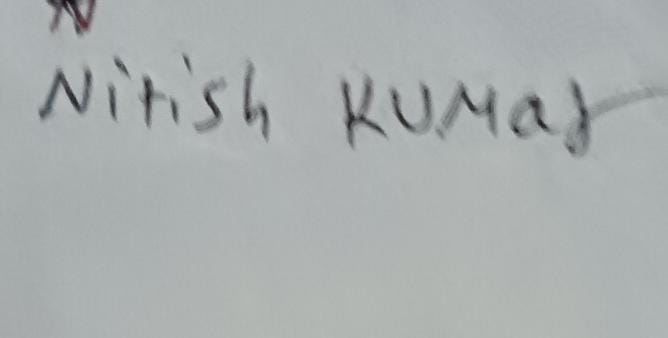 Nitish KUMar